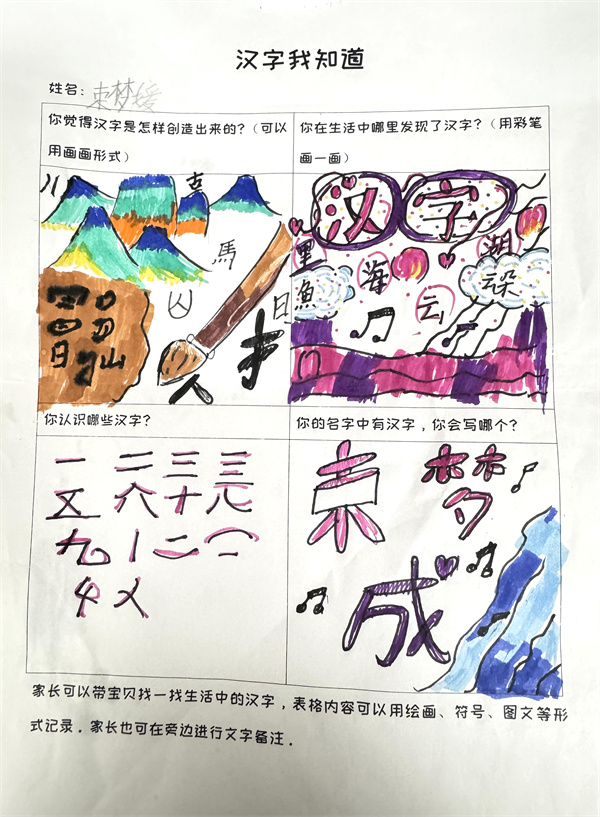 汉字我知道
姓名：束梦媛
你觉得汉字是怎样创造出来的？（可以
用画画形式）
你在生活中哪里发现了汉字？（用彩笔
画一画）
川
古
馬
山
日
汉字
里
海
湖
漁
云
云朵
你认识哪些汉字？
一 二 三 三
五 六 十 元
九
你的名字中有汉字，你会写哪个？
束 梦
成
家长可以带宝贝找一找生活中的汉字，表格内容可以用绘画、符号、图文等形
式记录。家长也可在旁边进行文字备注。